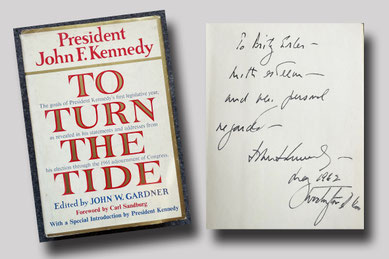 President
John F. Kennedy
TO
The goals of President Kennedy's first legislative year,
TURN
as revealed in his statements and addresses from
THE
his election through the 1961 adjournment of Congress.
TIDE
Edited by JOHN W. GARDNER
Foreword by Carl Sandburg
With a Special Introduction by President Kennedy
To
with esteem
and personal
regards
John Kennedy
1962